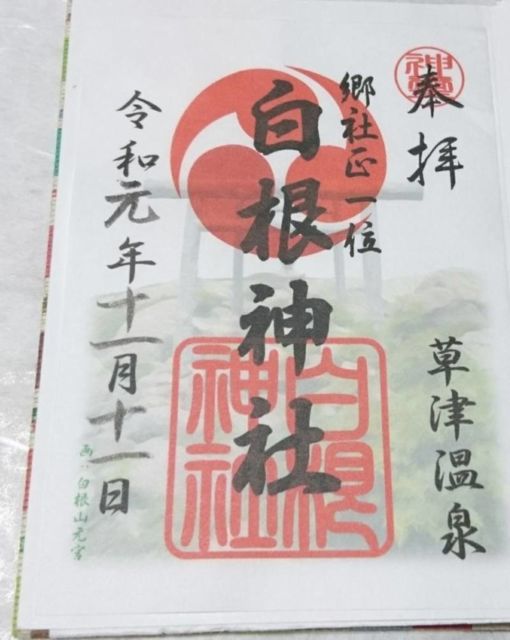 奉拝
草津温泉
郷社正一位
白根神社
令和元年十一月十一日
白根
神社
白根山元宮